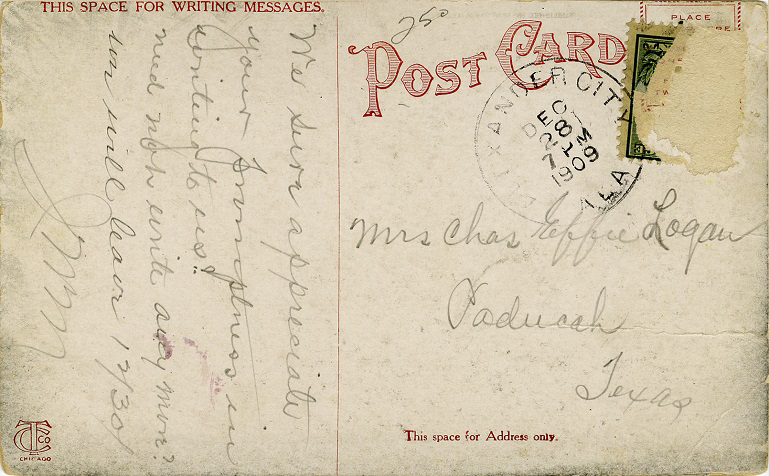 THIS SPACE FOR WRITING MESSAGES.
We sure appreciate
your promptness in
writing to us!
need not write any more
im will leave 12/30/
JMM
250
POST CARD
PLACE
RE
ALEXANDER CITY
DEC
28
7 PM
1909
ALA
Mrs Chas Effie Logan
Paducah
Texas
This space for Address only.
CT Co
CHICAGO